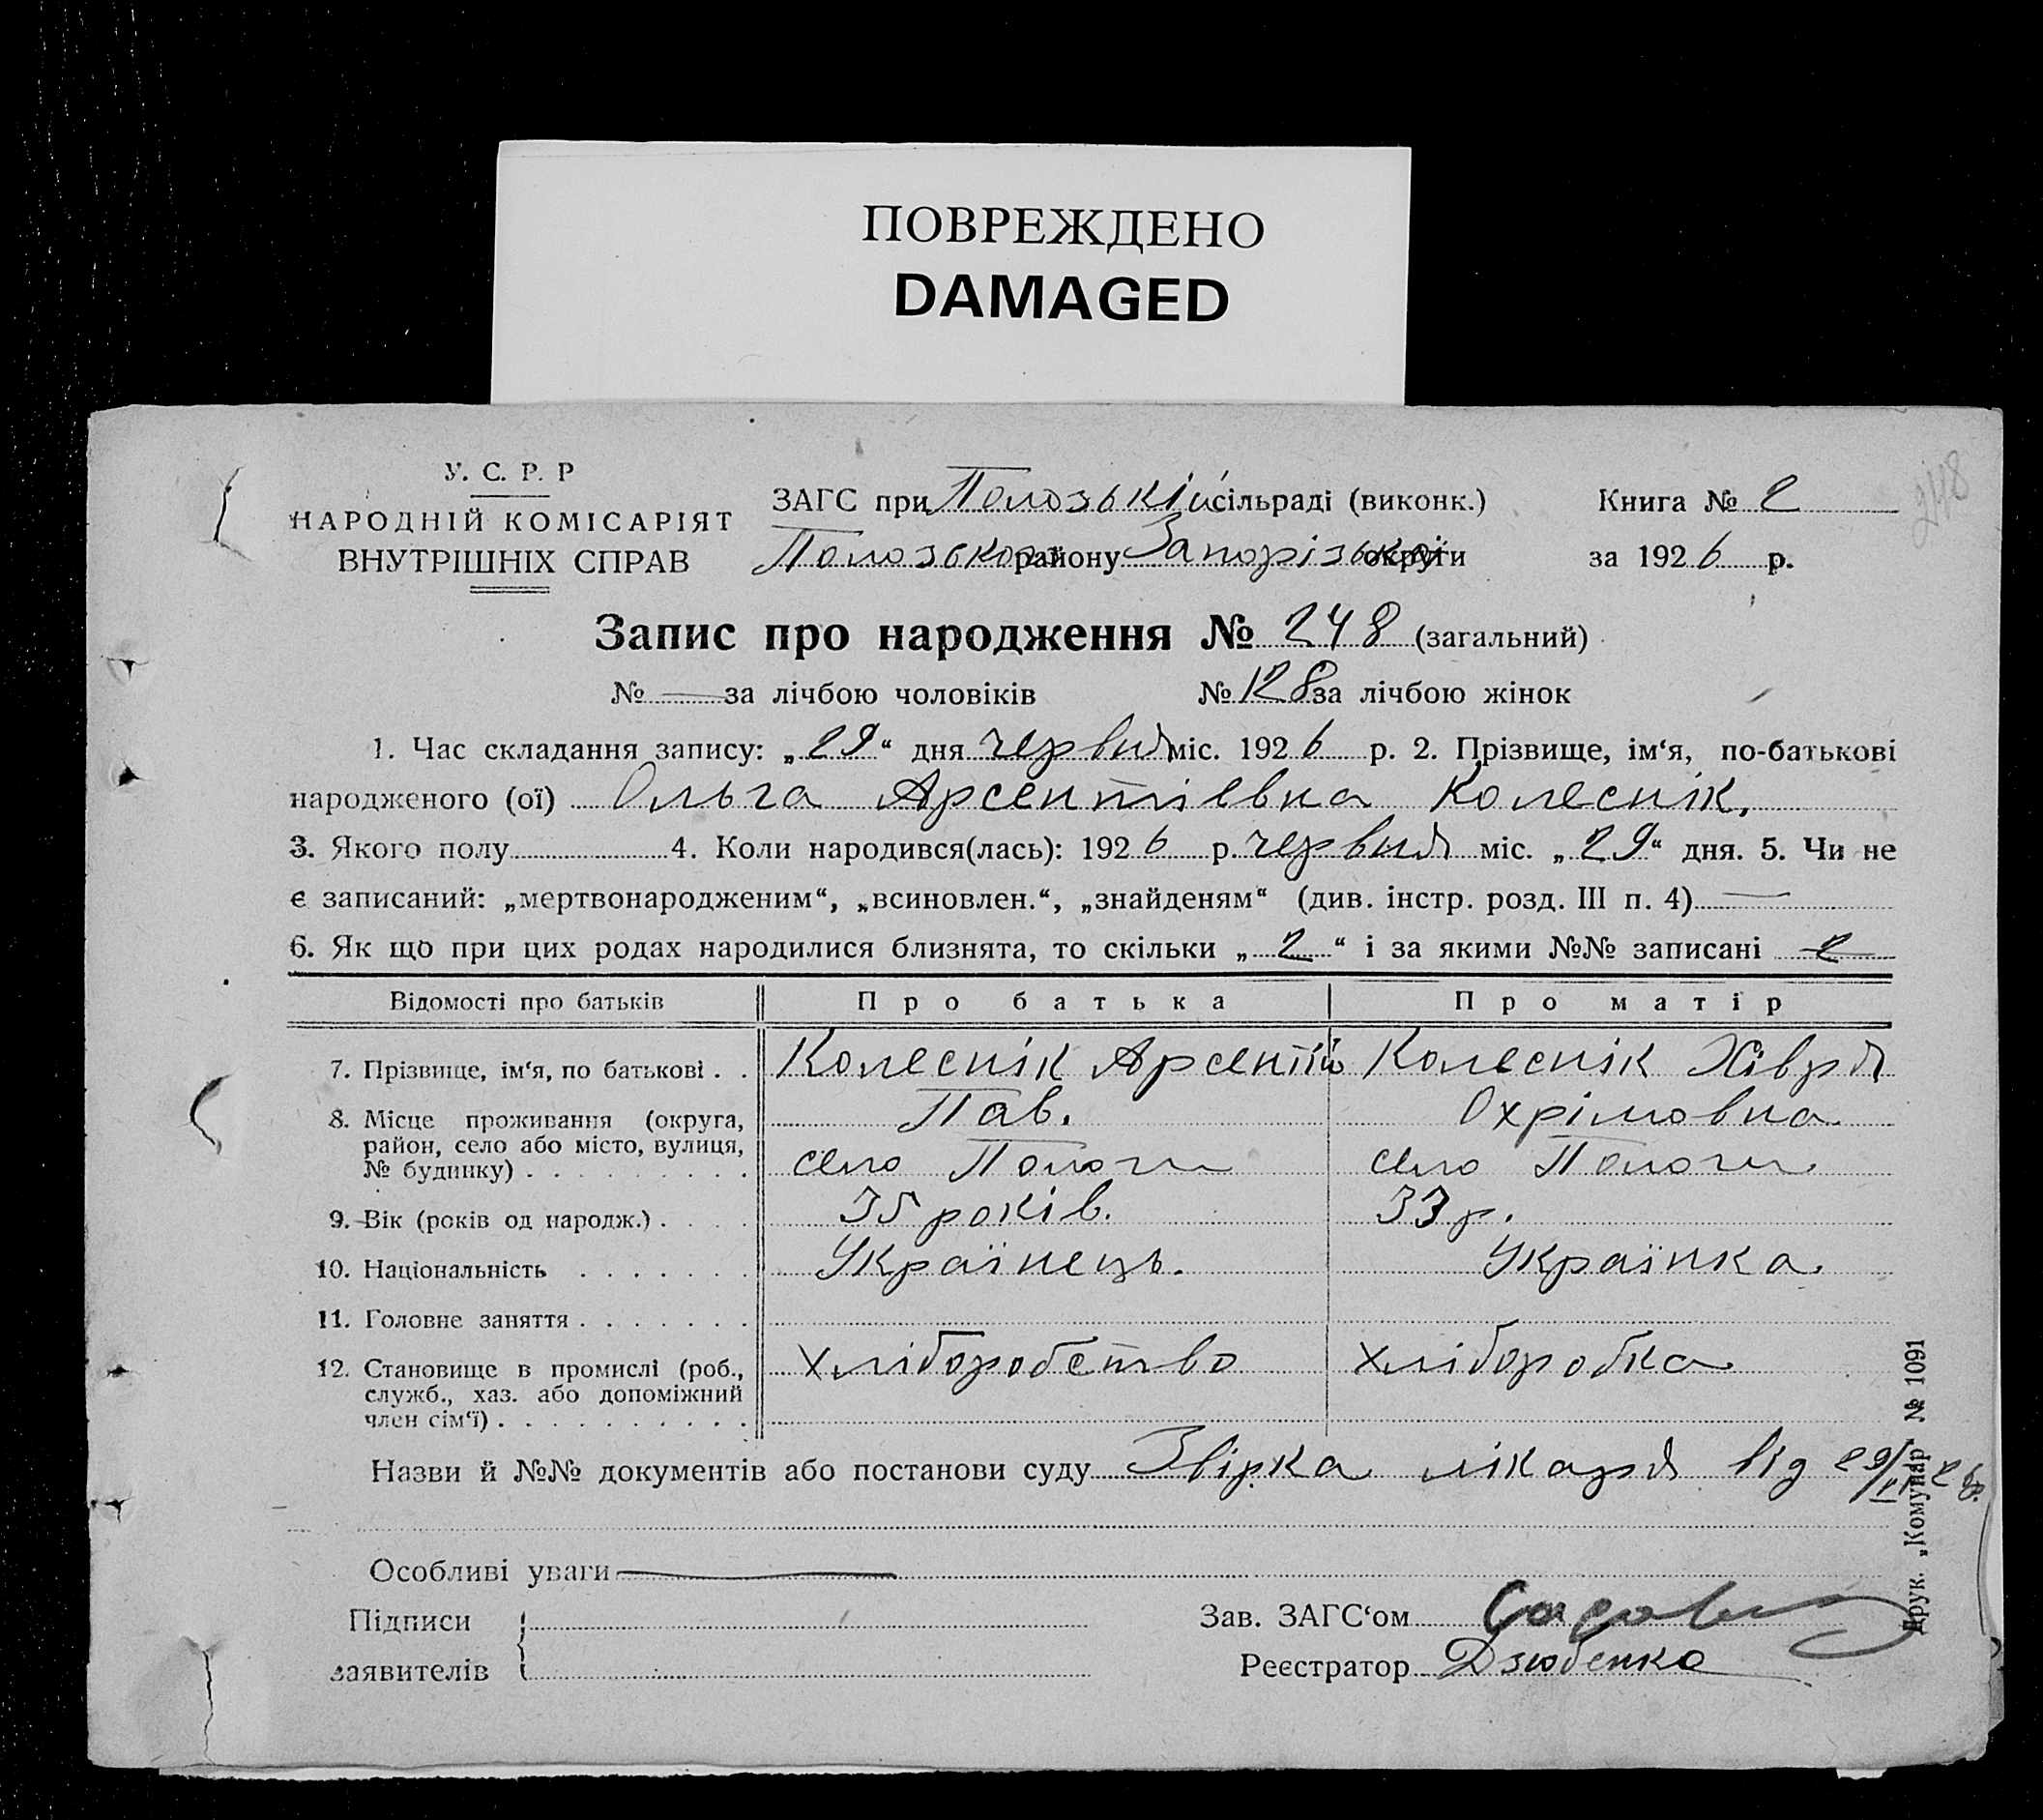 ПОВРЕЖДЕНО
DAMAGED
248
У. С. Р. Р
НАРОДНІЙ КОМІСАРІЯТ
ВНУТРІШНІХ СПРАВ
ЗАГС при Полозькій сільраді (виконк.)
Полозького району Запорізької округи
Книга № 2
за 1926 р.
Запис про народження № 248 (загальний)
№ — за лічбою чоловіків № 128 за лічбою жінок
1. Час складання запису: „29“ дня червня міс. 1926 р. 2. Прізвище, ім‘я, по-батькові
народженого (ої) Ольга Арсентіевна Колеснік.
3. Якого полу 4. Коли народився(лась): 1926 р. червня міс. „29“ дня. 5. Чи не
є записаний: „мертвонародженим“, „всиновлен.“, „знайденям“ (див. інстр. розд. III п. 4) —
6. Як що при цих родах народилися близнята, то скільки „2“ і за якими №№ записані 2
Відомості про батьків Про батька Про матір
7. Прізвище, ім‘я, по батькові . . Колеснік Арсентій Колеснік Хівря
Пав. Охрімовна
8. Місце проживання (округа,
район, село або місто, вулиця,
№ будинку) . . . . . . . . . село Пологи село Пологи
9. Вік (років од народж.) . . . . 35 років. 33 р.
10. Національність . . . . . . . Українець. Українка.
11. Головне заняття . . . . . . .
12. Становище в промислі (роб., хліборобство хліборобка
служб., хаз. або допоміжний
член сім‘ї) . . . . . . . . . .
Назви й №№ документів або постанови суду лікаря від 29/VI 26
Особливі уваги —
Підписи
заявителів
Зав. ЗАГС‘ом
Реєстратор Дзюбенко
Друк. „Комунар № 1091